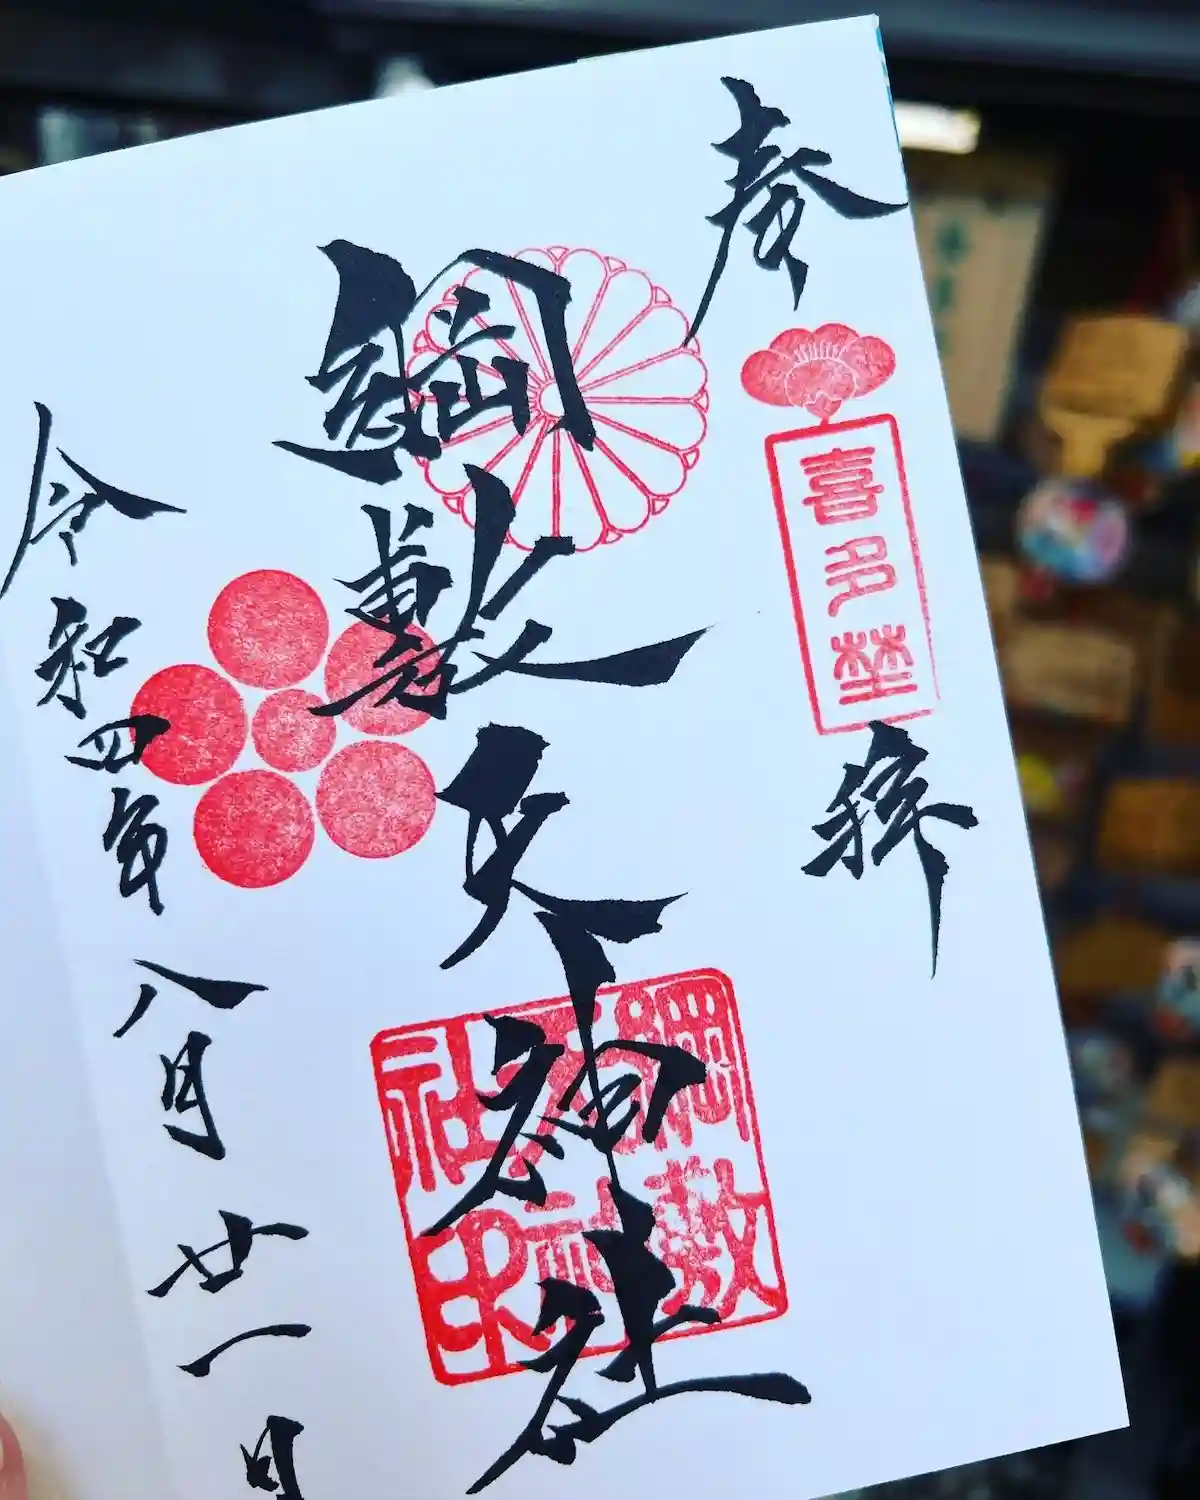 奉
喜多埜
拝
綱敷天神社
綱敷
天神
社印
令和四年八月廿一日